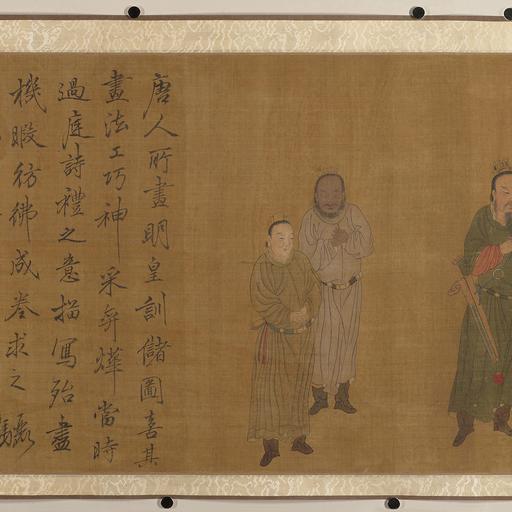 唐人所畫明皇訓儲圖喜其
畫法工巧神采弈燁當時
過庭詩禮之意描寫殆盡
機暇彷彿成卷求之驪